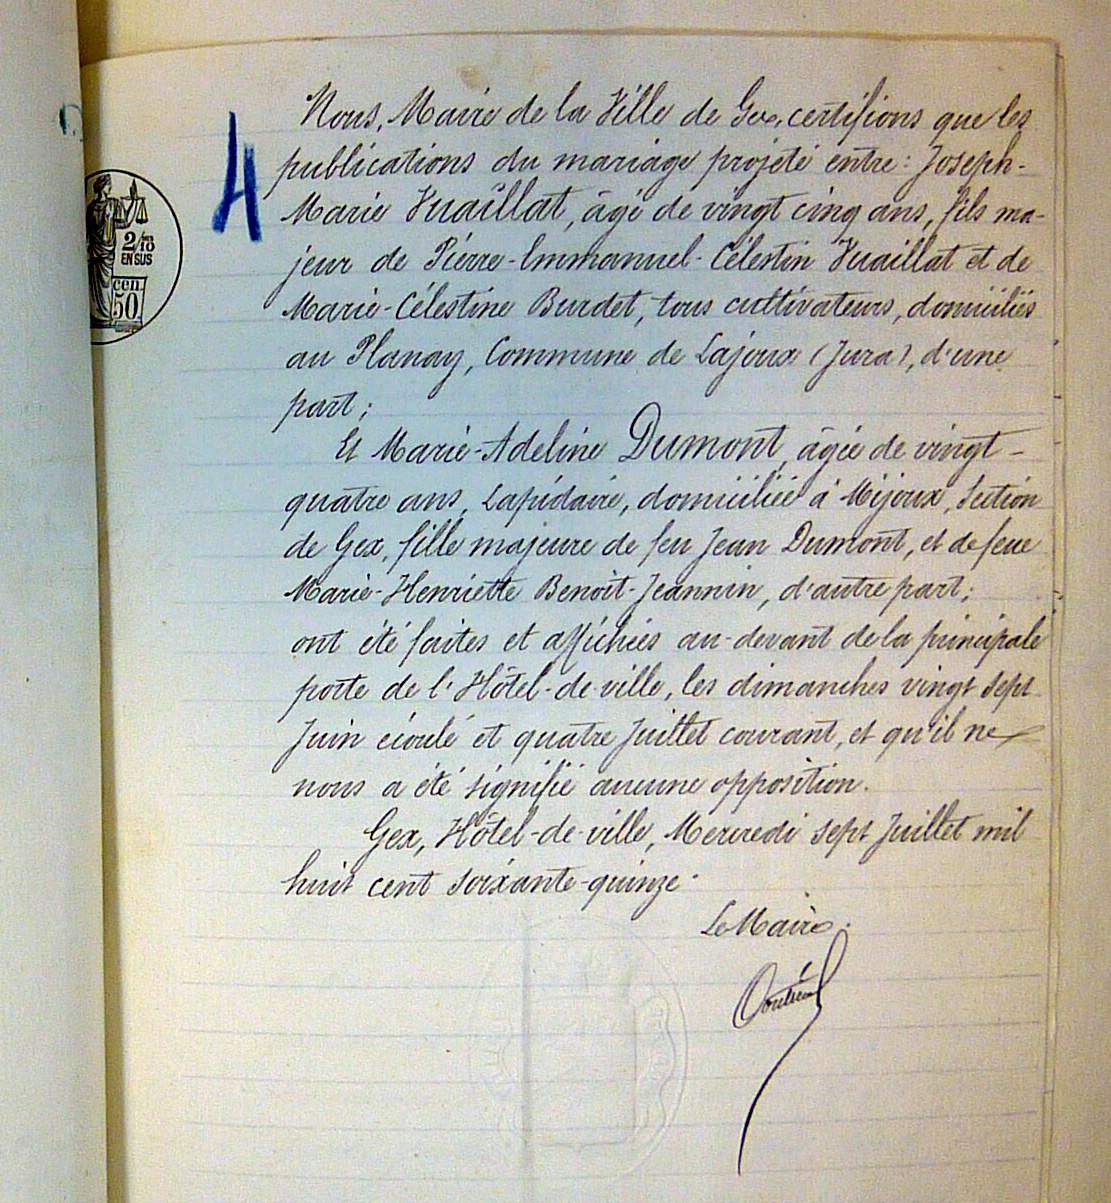 4
2/10
EN SUS
cen.
50
Nous, Maire de la Ville de Gex, certifions que les
publications du mariage projeté entre : Joseph-
Marie Vuaillat, âgé de vingt cinq ans, fils ma-
jeur de Pierre-Emmanuel-Célestin Vuaillat et de
Marie-Célestine Burdet, tous cultivateurs, domiciliés
au Planay, Commune de Lajoux (Jura), d'une
part ;
Et Marie-Adeline Dumont, âgée de vingt-
quatre ans, Lapidaire, domiciliée à Mijoux, Section
de Gex, fille majeure de feu Jean Dumont, et de feue
Marie-Henriette Benoit-Jeannin, d'autre part ;
ont été faites et affichées au-devant de la principale
porte de l'Hôtel-de-ville, les dimanches vingt sept
Juin écoulé et quatre Juillet courant, et qu'il ne
nous a été signifié aucune opposition.
Gex, Hôtel-de-ville, Mercredi sept Juillet mil
huit cent soixante-quinze.
Le Maire.